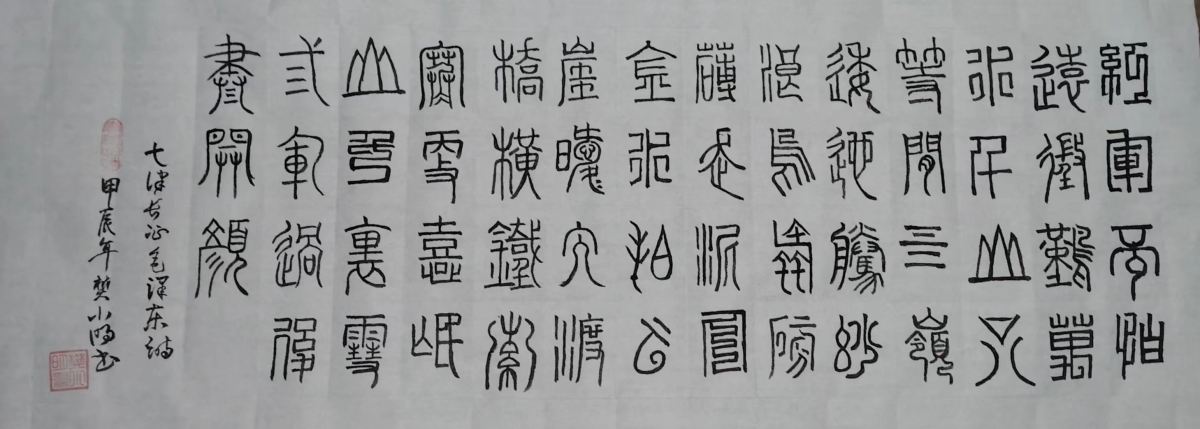 紅軍不怕
遠徵難萬
水千山只
等閒五嶺
逶迤騰細
浪烏蒙磅
礴走泥丸
金水拍云
崖暖大渡
橋橫鐵索
寒更喜岷
山千里雪
弎軍過後
盡開顏
七律长征毛泽东诗
甲辰年樊小明书